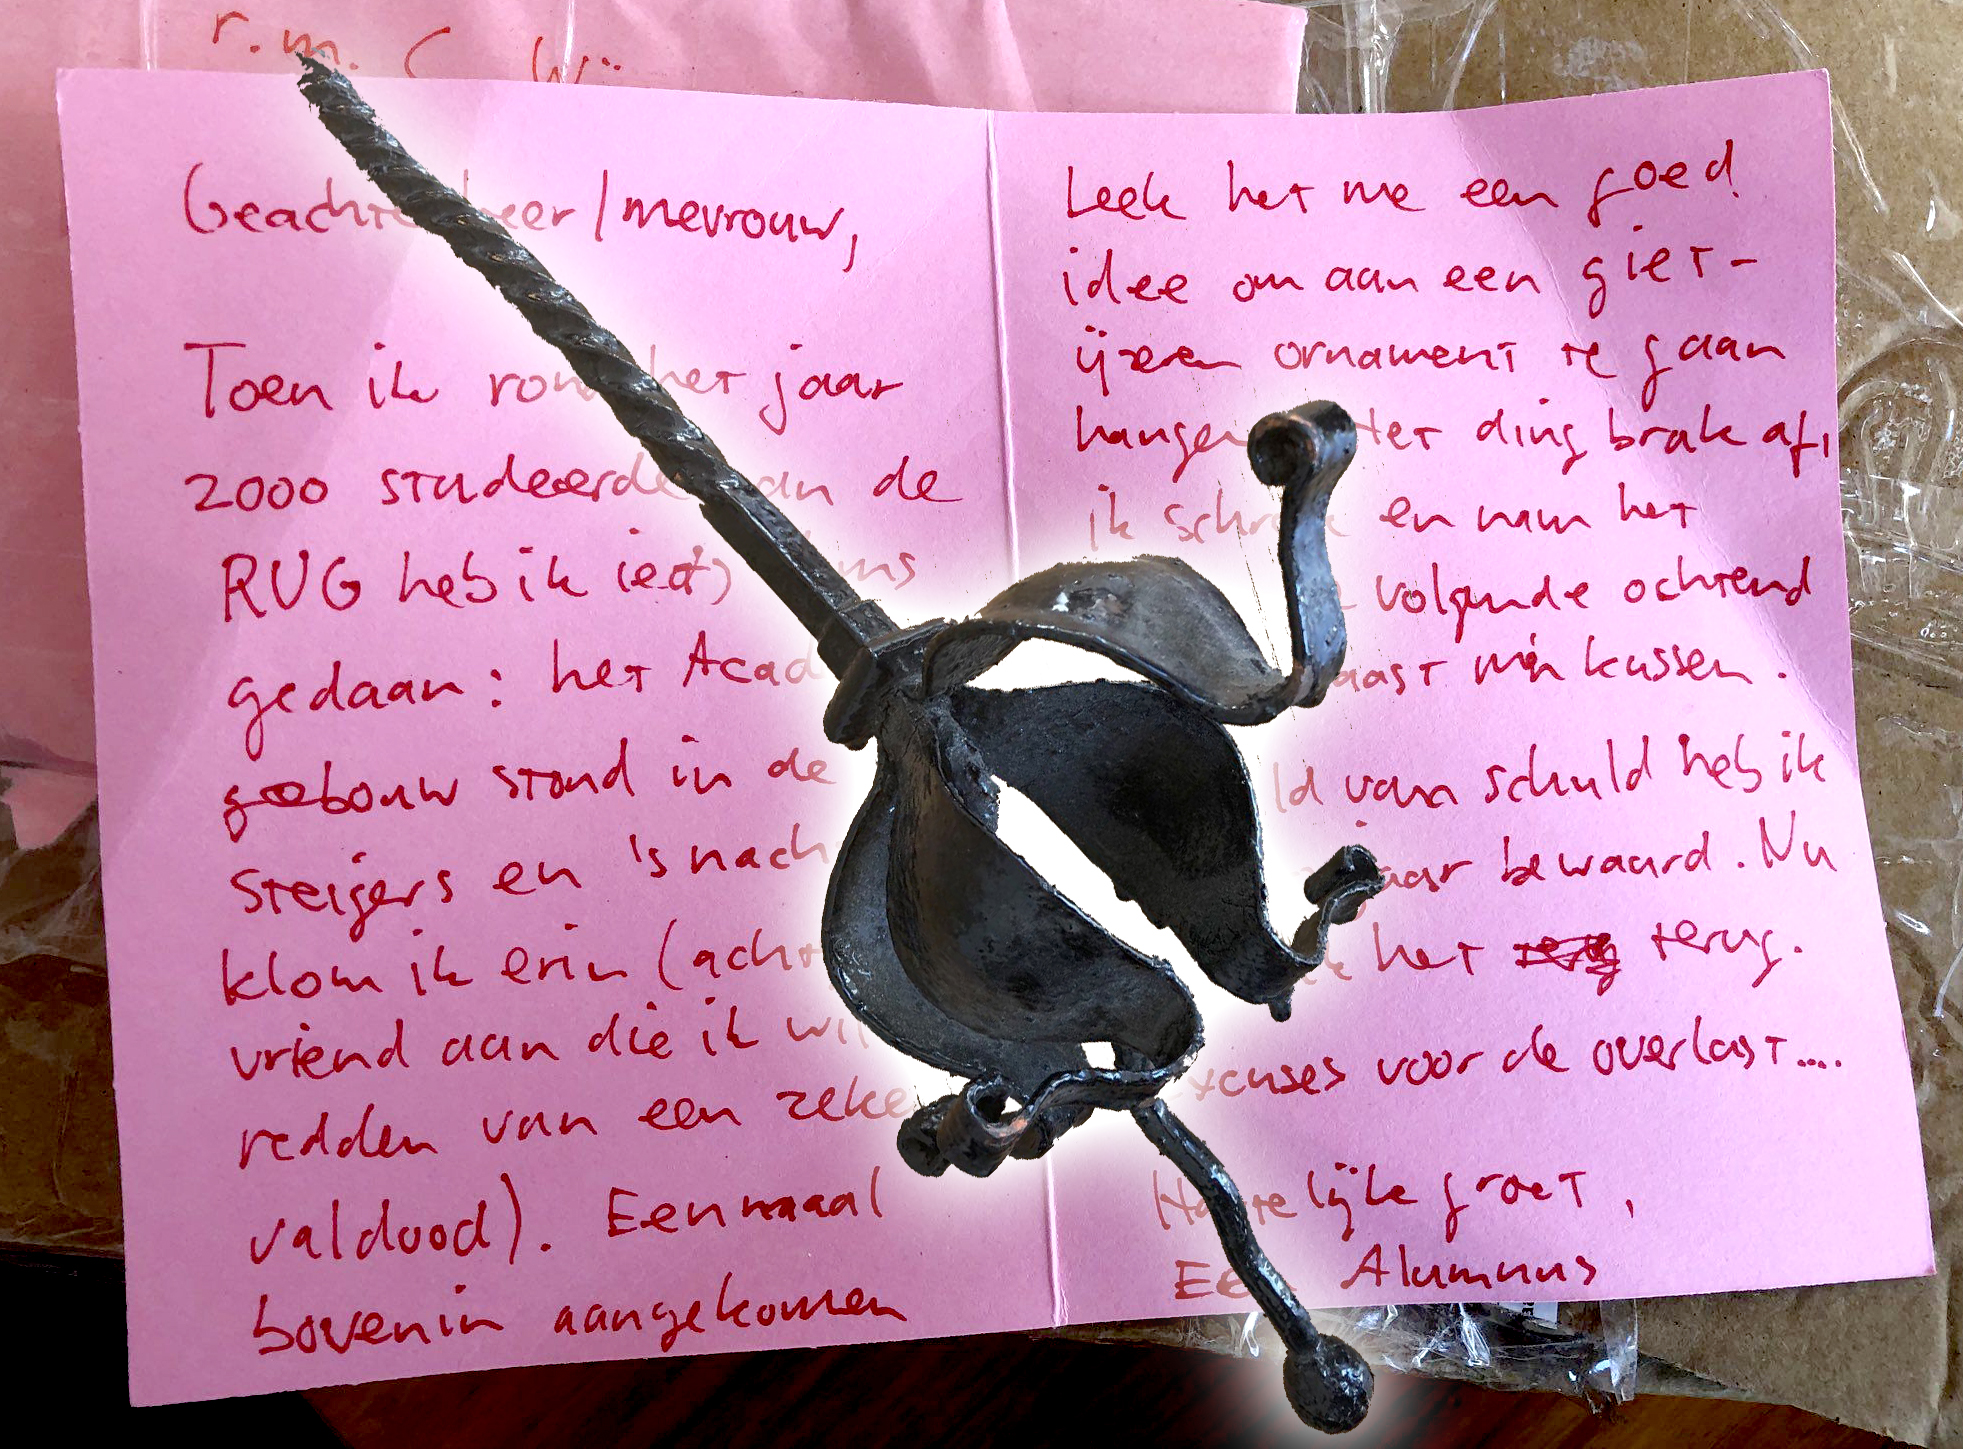 r.m. C. Wij
Geachte heer/mevrouw,
Toen ik rond het jaar
2000 studeerde aan de
RUG heb ik iets
gedaan: het Acad
gebouw stond in de
steigers en 's nach
klom ik erin (acht
vriend aan die ik wil
redden van een zeke
valdood). Eenmaal
bovenin aangekomen
Leek het me een goed
idee om aan een giet-
ijzeren ornament te gaan
hangen. Het ding brak af,
ik schrok en nam het
volgende ochtend
naast mijn kussen.
ld van schuld heb ik
jaar bewaard. Nu
ik het terug.
excuses voor de overlast....
Hartelijke groet,
Een Alumnus